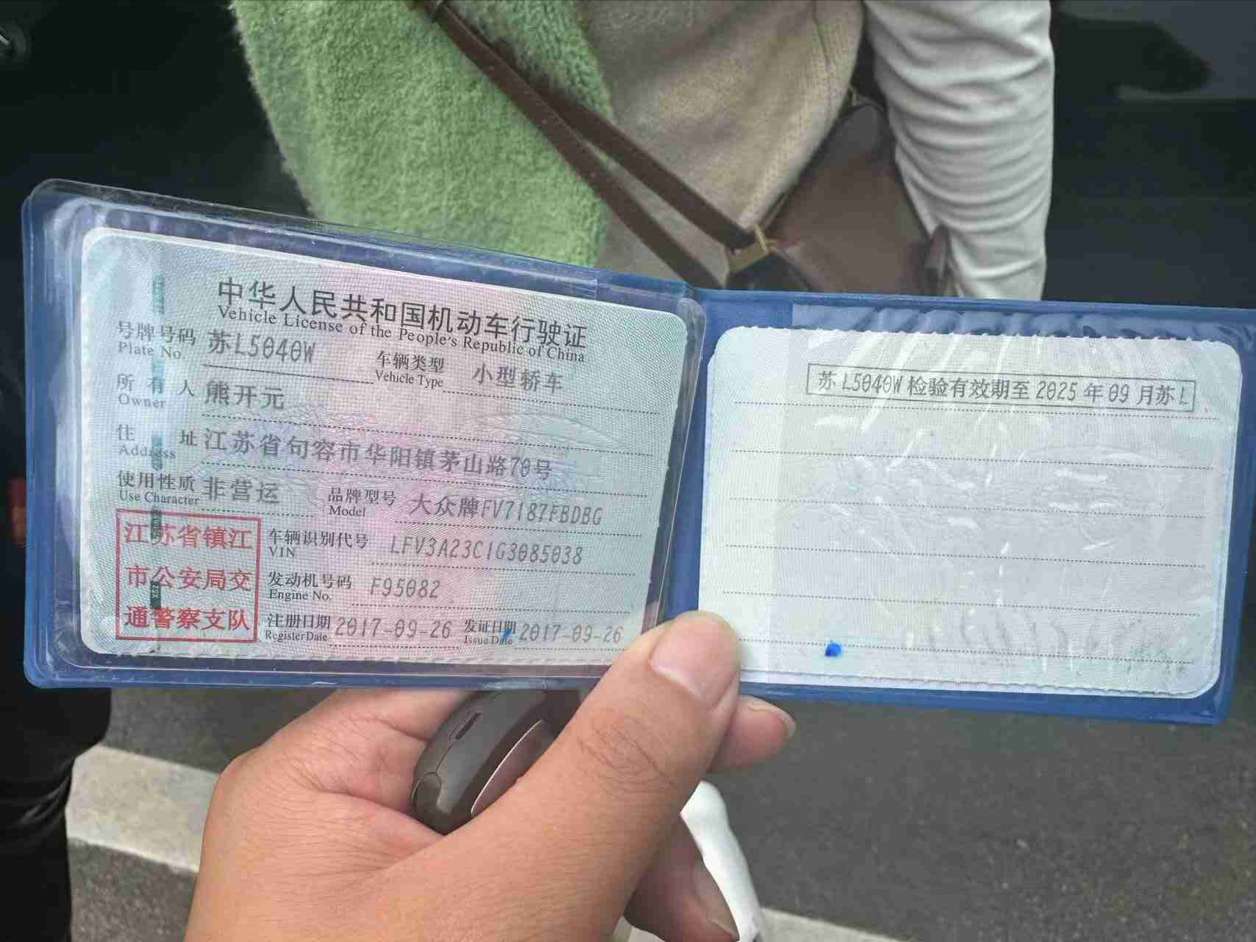 中华人民共和国机动车行驶证
Vehicle License of the People's Republic of China
号牌号码 苏L5040W 车辆类型 小型轿车
Plate No. Vehicle Type
所有人 熊开元
Owner
住址 江苏省句容市华阳镇茅山路70号
Address
使用性质 非营运 品牌型号 大众牌FV7187FBDBG
Use Character Model
江苏省镇江
市公安局交
通警察支队
车辆识别代号 LFV3A23C1G3085038
VIN
发动机号码 F95082
Engine No.
注册日期 2017-09-26 发证日期 2017-09-26
Register Date Issue Date
苏L5040W检验有效期至2025年09月苏L